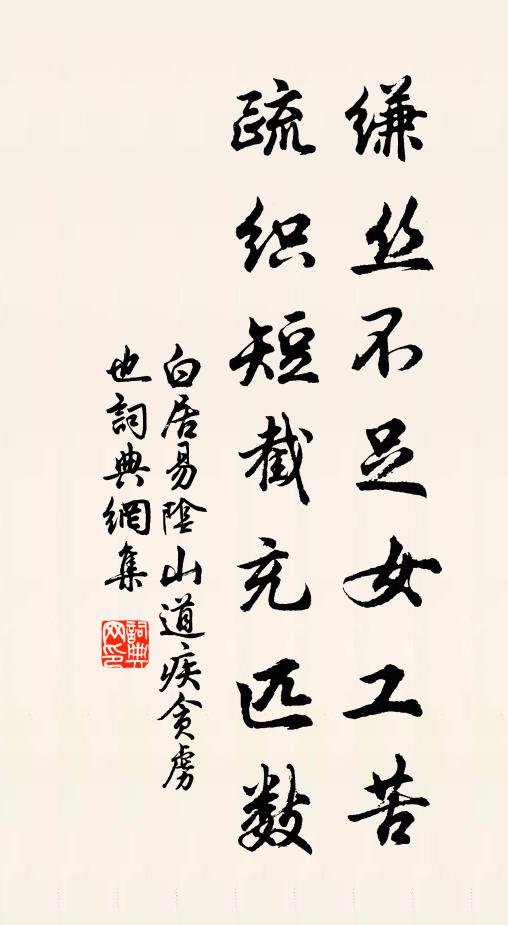 缣丝不足女工苦
疏织短截充匹数
白居易陰山道疾贪虏
也詞典網集
詞典
网印